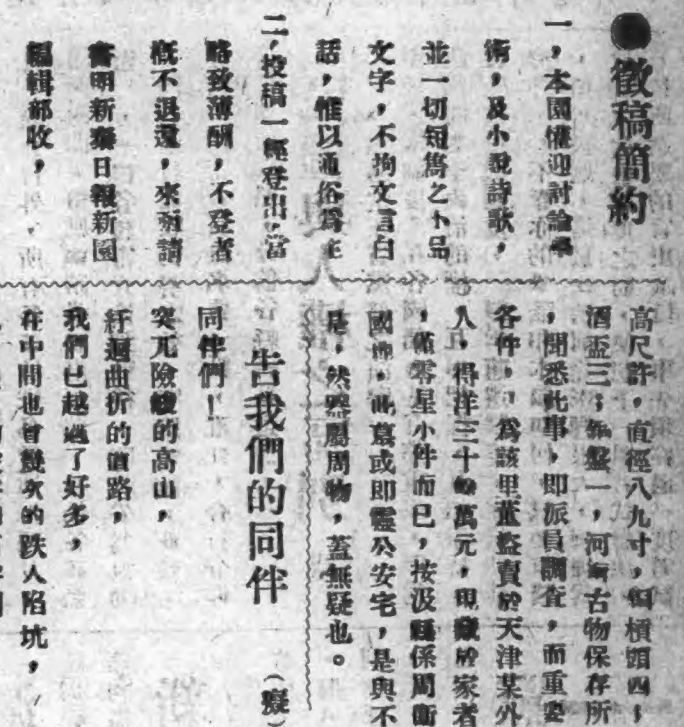 ●徵稿簡約
一，本園懽迎討論學
術，及小說詩歌，
並一切短雋之小品
文字，不拘文言白
話，惟以通俗爲主
二，投稿一經登出，當
略致薄酬，不登者
概不退還，來函請
書明新報新園
編輯部收，
高尺許，直徑八九寸，銅槓頭四，
酒盃三；銅盤一，河南古物保存所
，聞悉此事，即派員調查，而重要
各件，已爲該里董盜賣於天津某外
人，得洋三十餘萬元，現藏於家者
，僅零星小件而已，按汲縣係周衛
國地，此墓或即靈公安宅，是與不
是，然器屬周物，蓋無疑也。
告我們的同伴
（癡）
同伴們！
突兀險峻的高山，
紆迴曲折的道路，
我們已越過了好多，
在中間也曾幾次的跌入陷坑，